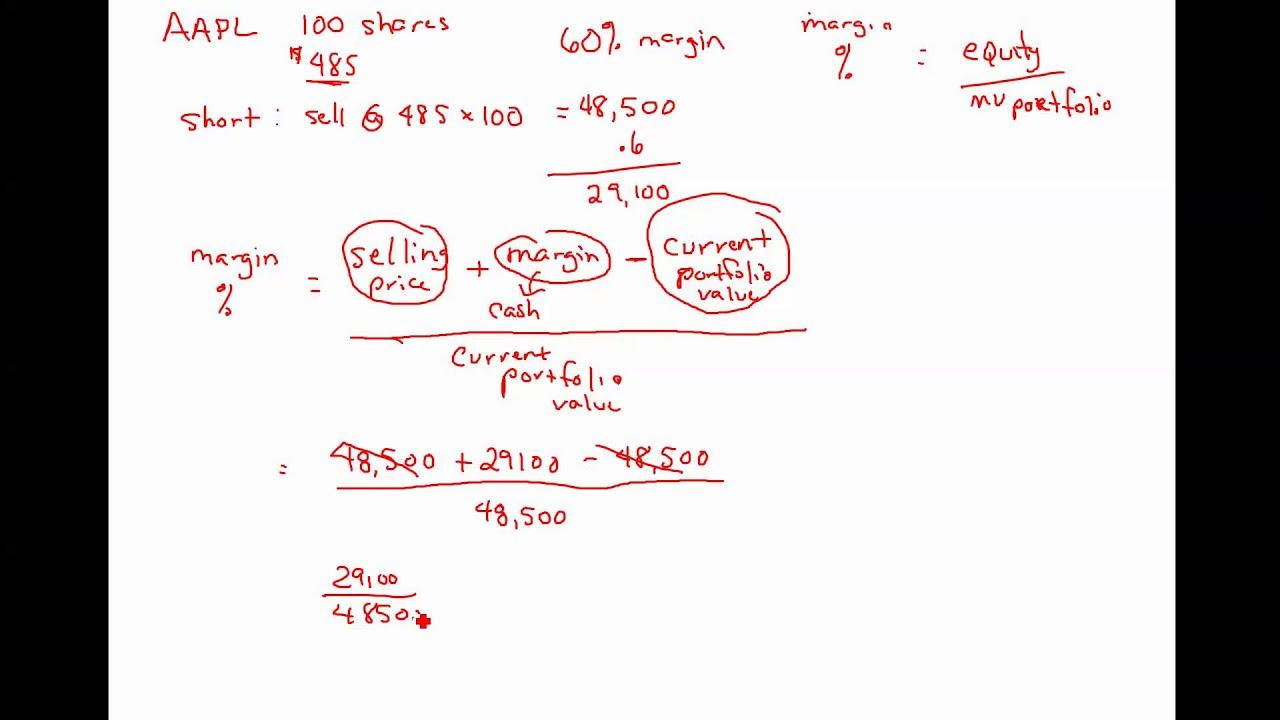 AAPL 100 shares
$485
60% margin
margin % = equity
mv portfolio
short: sell @ 485 × 100 = 48,500
.6
29,100
margin % = selling price + margin − current portfolio value
cash
current
portfolio
value
= 48,500 + 29100 − 48,500
48,500
29,100
4850